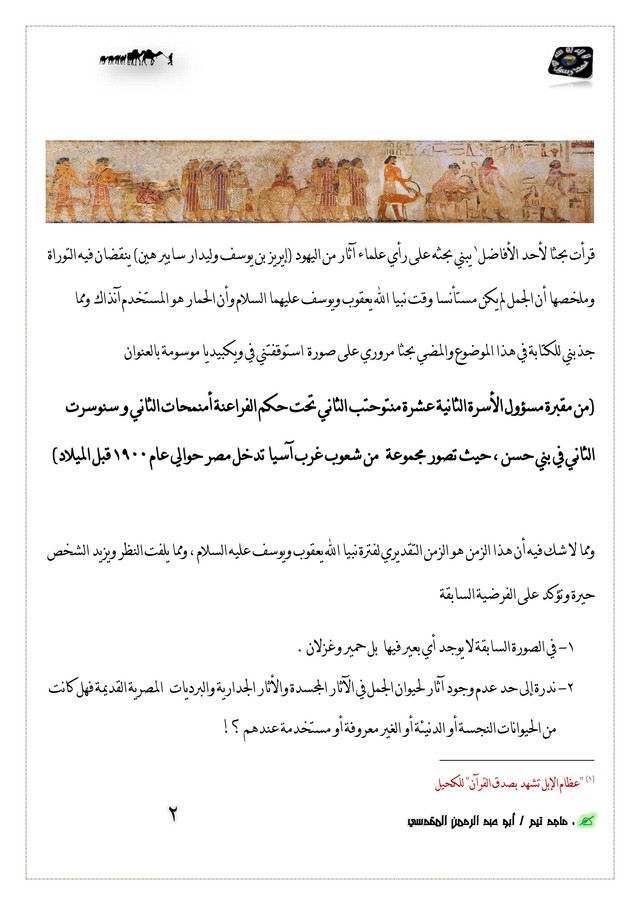 قرأت بحثا لأحد الأفاضل١ يبني بحثه على رأي علماء آثار من اليهود (إيريز بن يوسف وليدار سابير هين) ينقضان فيه التوراة
وملخصها أن الجمل لم يكن مستأنسا وقت نبيا الله يعقوب ويوسف عليهما السلام وأن الحمار هو المستخدم آنذاك ومما
جذبني للكتابة في هذا الموضوع والمضي بحثا مروري على صورة استوقفتني في ويكبيديا موسومة بالعنوان
(من مقبرة مسؤول الأسرة الثانية عشرة منتوحتب الثاني تحت حكم الفراعنة أمنمحات الثاني و سنوسرت
الثاني في بني حسن ، حيث تصور مجموعة من شعوب غرب آسيا تدخل مصر حوالي عام ١٩٠٠ قبل الميلاد)
ومما لا شك فيه أن هذا الزمن هو الزمن التقديري لفترة نبيا الله يعقوب ويوسف عليه السلام ، ومما يلفت النظر ويزيد الشخص
حيرة وتؤكد على الفرضية السابقة
١- في الصورة السابقة لا يوجد أي بعير فيها بل حمير وغزلان .
٢- ندرة إلى حد عدم وجود آثار لحيوان الجمل في الآثار المجسدة والأثار الجدارية والبرديات المصرية القديمة فهل كانت
من الحيوانات النجسة أو الدنيئة أو الغير معروفة أو مستخدمة عندهم ؟ !
(١) "عظام الإبل تشهد بصدق القرآن" للكحيل
. ماجد تيم / أبو عبد الرحمن المقدسي
٢